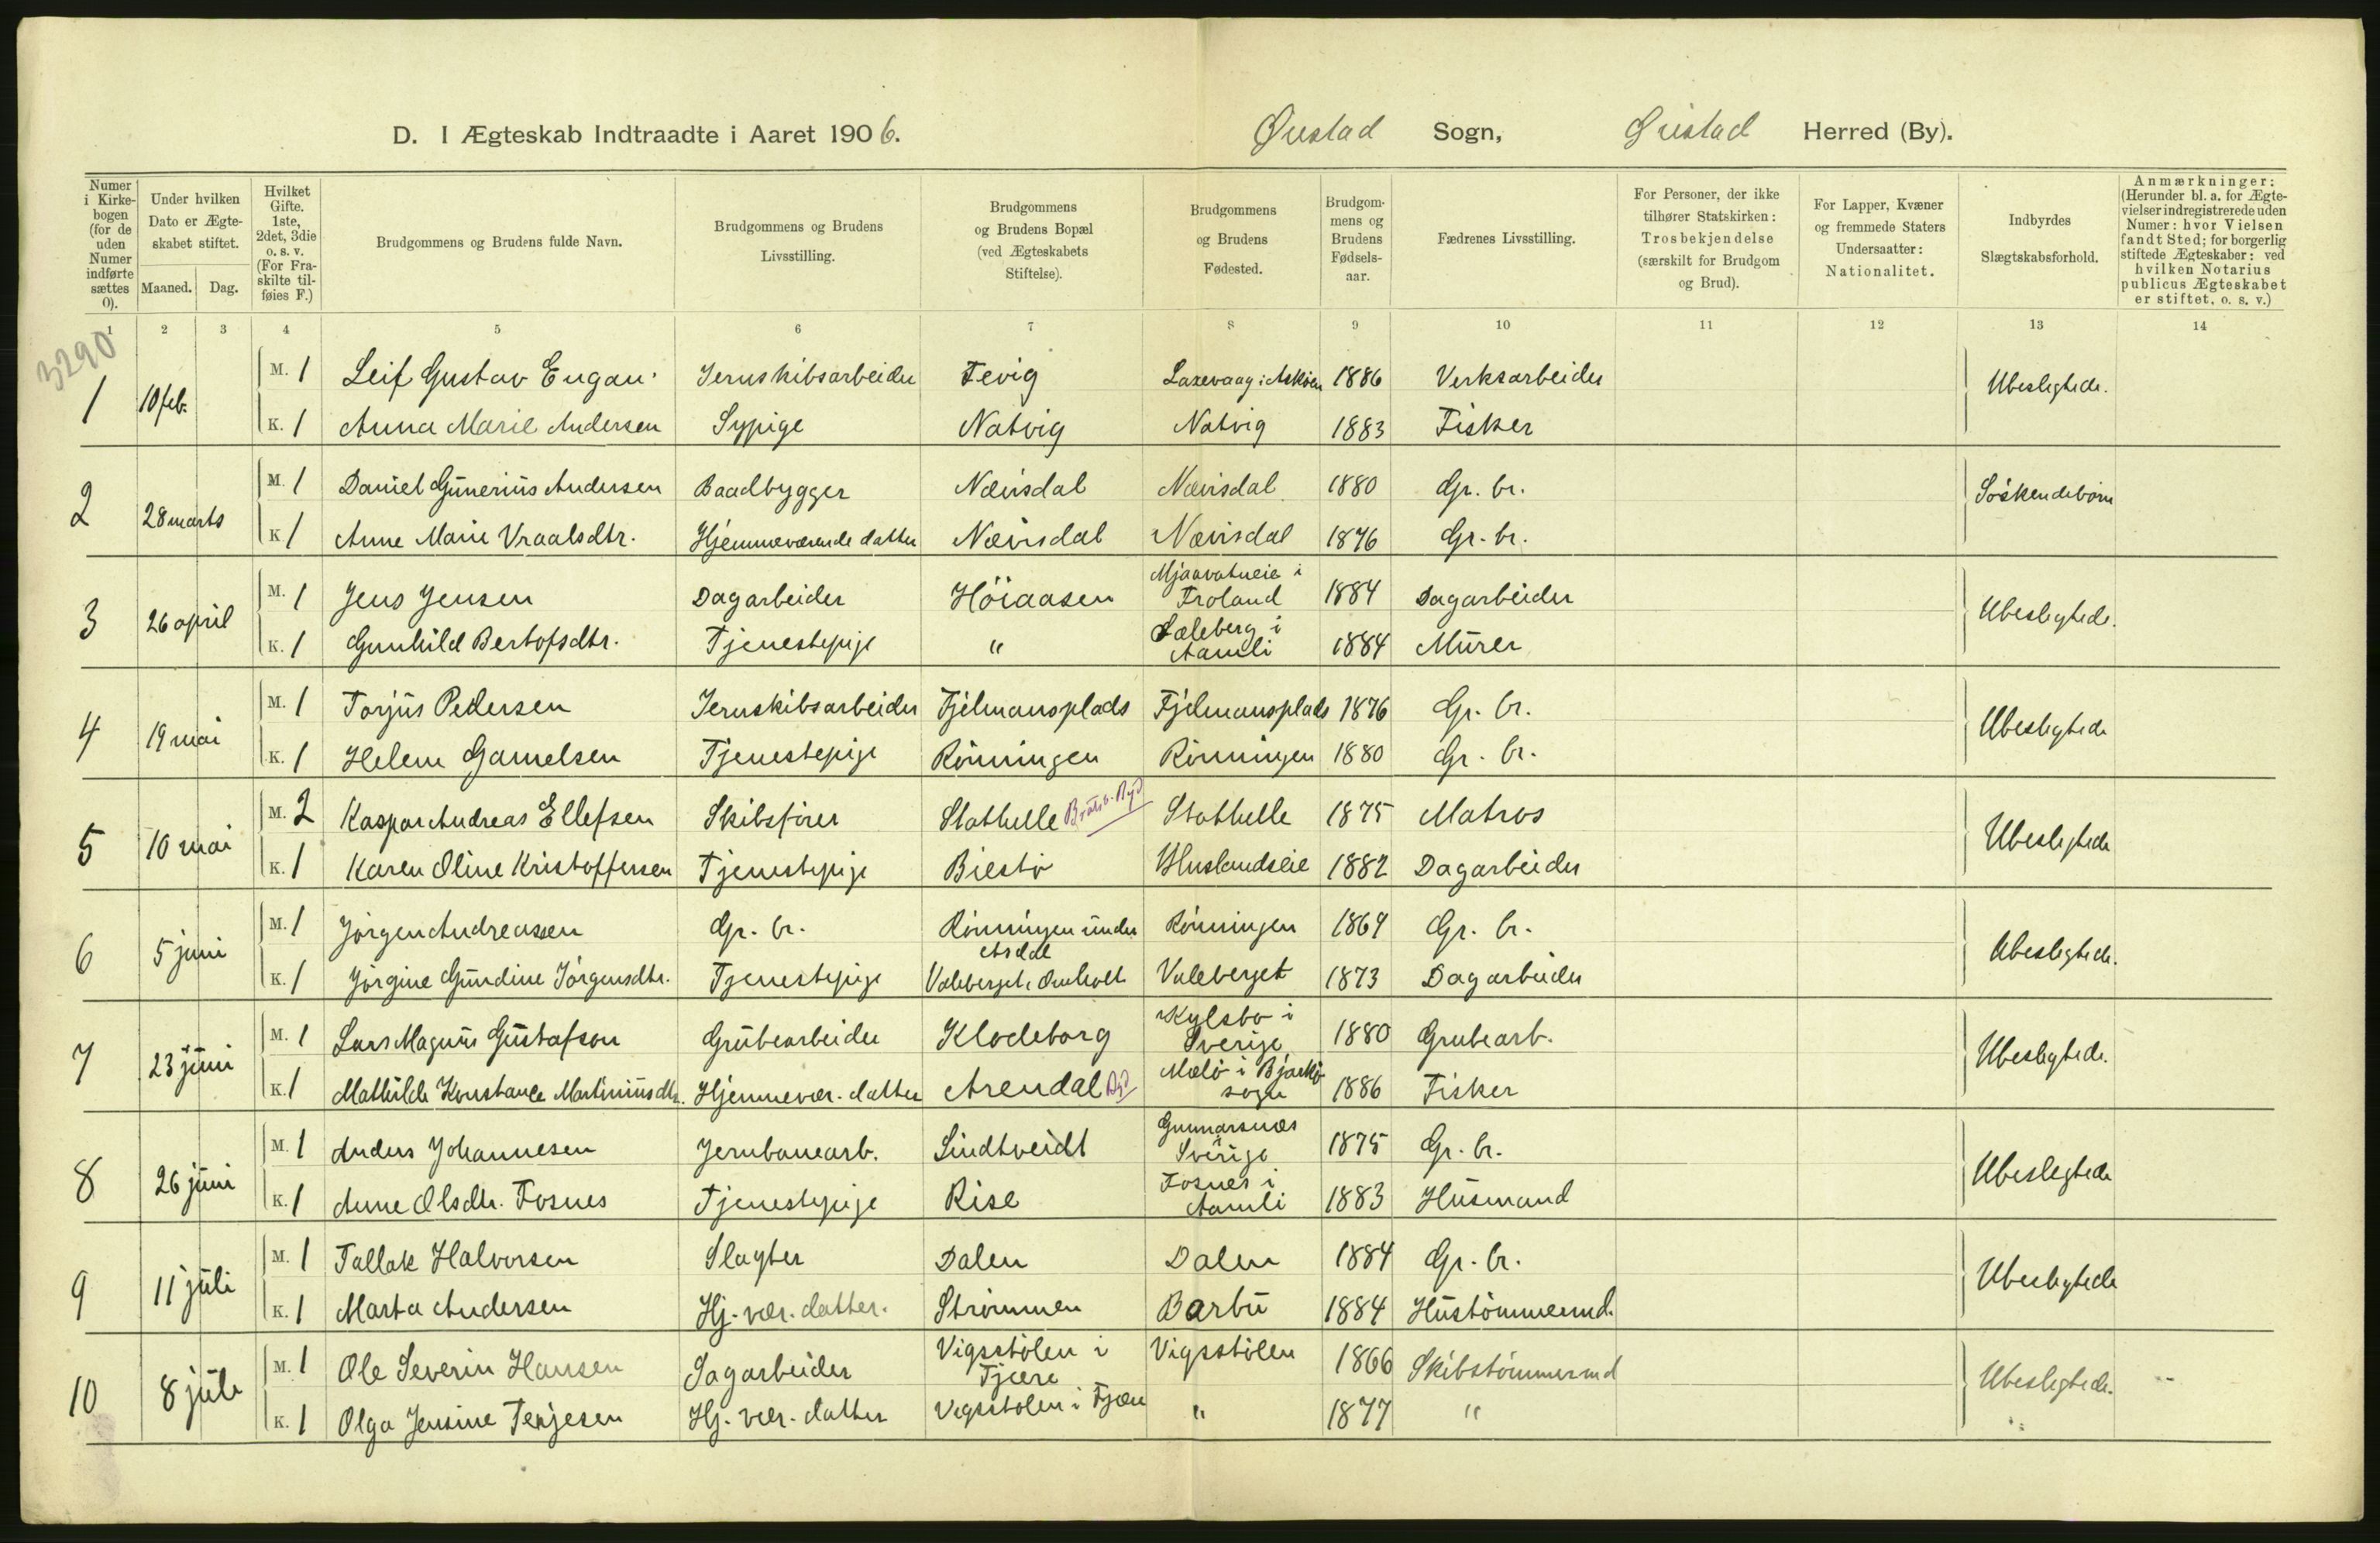 D. I Ægteskab Indtraadte i Aaret 1906. Øiestad Sogn, Øiestad Herred (By).
Numer i Kirkebogen (for de uden Numer indførte sættes 0). | Under hvilken Dato er Ægteskabet stiftet. Maaned. Dag. | Hvilket Gifte. 1ste, 2det, 3die o. s. v. (For Fraskilte tilføies F.) | Brudgommens og Brudens fulde Navn. | Brudgommens og Brudens Livsstilling. | Brudgommens og Brudens Bopæl (ved Ægteskabets Stiftelse). | Brudgommens og Brudens Fødested. | Brudgommens og Brudens Fødselsaar. | Fædrenes Livsstilling. | For Personer, der ikke tilhører Statskirken: Trosbekjendelse (særskilt for Brudgom og Brud). | For Lapper, Kvæner og fremmede Staters Undersaatter: Nationalitet. | Indbyrdes Slægtskabsforhold. | Anmærkninger: (Herunder bl. a. for Ægtevielser indregistrerede uden Numer: hvor Vielsen fandt Sted; for borgerlig stiftede Ægteskaber: ved hvilken Notarius publicus Ægteskabet er stiftet, o. s. v.)
1 2 3 4 5 6 7 8 9 10 11 12 13 14
3290
1 10 feb. M. 1 Leif Gustav Engan Jernskibsarbeider Fevig Laxevaag i Askøen 1886 Verksarbeider Ubeslegtede.
K. 1 Anna Marie Andersen Sypige Natvig Natvig 1883 Fisker
2 28 marts M. 1 Daniel Gunerius Andersen Baadbygger Nævisdal Nævisdal 1880 Gr. br. Søskendebørn
K. 1 Anne Marie Vraalsdtr. Hjemmeværende datter Nævisdal Nævisdal 1876 Gr. br.
3 26 april M. 1 Jens Jensen Dagarbeider Høiaasen Mjaavatneie i Froland 1884 Dagarbeider Ubeslegtede.
K. 1 Gunhild Bertofsdtr. Tjenestepige " Sæleberg i Aamli 1884 Murer
4 19 mai M. 1 Torjus Pedersen Jernskibsarbeider Fjelmansplads Fjelmansplads 1876 Gr. br. Ubeslegtede
K. 1 Helene Gamelsen Tjenestepige Rønningen Rønningen 1880 Gr. br.
5 10 mai M. 2 Kaspar Andreas Ellefsen Skibsfører Stathelle Bratsb. Byd Stathelle 1875 Matros Ubeslegtede
K. 1 Karen Oline Kristoffersen Tjenestepige Biestø 1882 Dagarbeider
6 5 juni M. 1 Jørgen Andreassen Gr. br. Rønningen under Asdal Rønningen 1869 Gr. br. Ubeslegtede.
K. 1 Jørgine Gundine Jørgensdtr. Tjenestepige Valeberget i Omholt Valeberget 1873 Dagarbeider
7 23 juni M. 1 Lars Magnus Gustafson Grubearbeider Klodeborg Kylsbo i Sverige 1880 Grubearb. Ubeslegtede.
K. 1 Mathilde Konstance Martiniusdtr. Hjemmevær. datter Arendal Byd Malø i Bjarkø sogn 1886 Fisker
8 26 juni M. 1 Anders Johannesen Jernbanearb. Lindtveidt Gunnarsnæs Sverige 1875 Gr. br. Ubeslegtede
K. 1 Anne Olsdtr. Fosnes Tjenestepige Rise Fosnes i Aamli 1883 Husmand
9 11 juli M. 1 Tallak Halvorsen Slagter Dalen Dalen 1884 Gr. br. Ubeslegtede
K. 1 Marta Andersen Hj. vær. datter. Strømmen Barbu 1884 Hustømmermd.
10 8 juli M. 1 Ole Severin Hansen Sagarbeider Vigsstølen i Fjære Vigsstølen 1866 Skibstømmermd Ubeslegtede.
K. 1 Olga Jensine Terjesen Hj. vær. datter Vigsstølen i Fjære " 1877 "